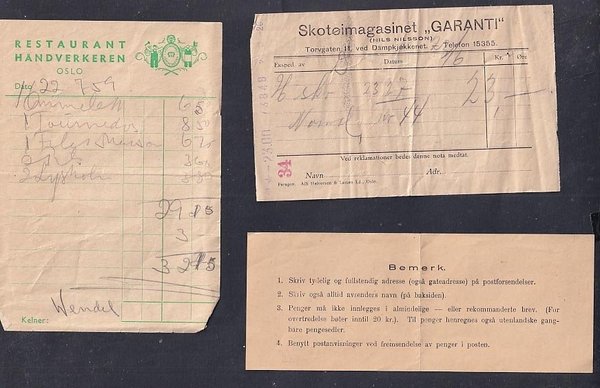 RESTAURANT
HÅNDVERKEREN
OSLO
Dato 22 7 59
1 Tournedos 8
29 15
3
32 15
Wendel
Kelner:
Skotøimagasinet „GARANTI"
(NILS NILSSON)
Torvgaten 11, ved Dampkjøkkenet. Telefon 15355.
Eksped. av Datum Kr. Øre
H. sko 23 27 23 —
Nr 44
34
Ved reklamationer bedes denne nota medtat.
Navn Adr.
Bemerk.
1. Skriv tydelig og fullstendig adresse (også gateadresse) på postforsendelser.
2. Skriv også alltid avsenders navn (på baksiden).
3. Penger må ikke innlegges i almindelige — eller rekommanderte brev. (For
overtredelse bøter inntil 20 kr.). Til penger henregnes også utenlandske gang-
bare pengesedler.
4. Benytt postanvisninger ved fremsendelse av penger i posten.